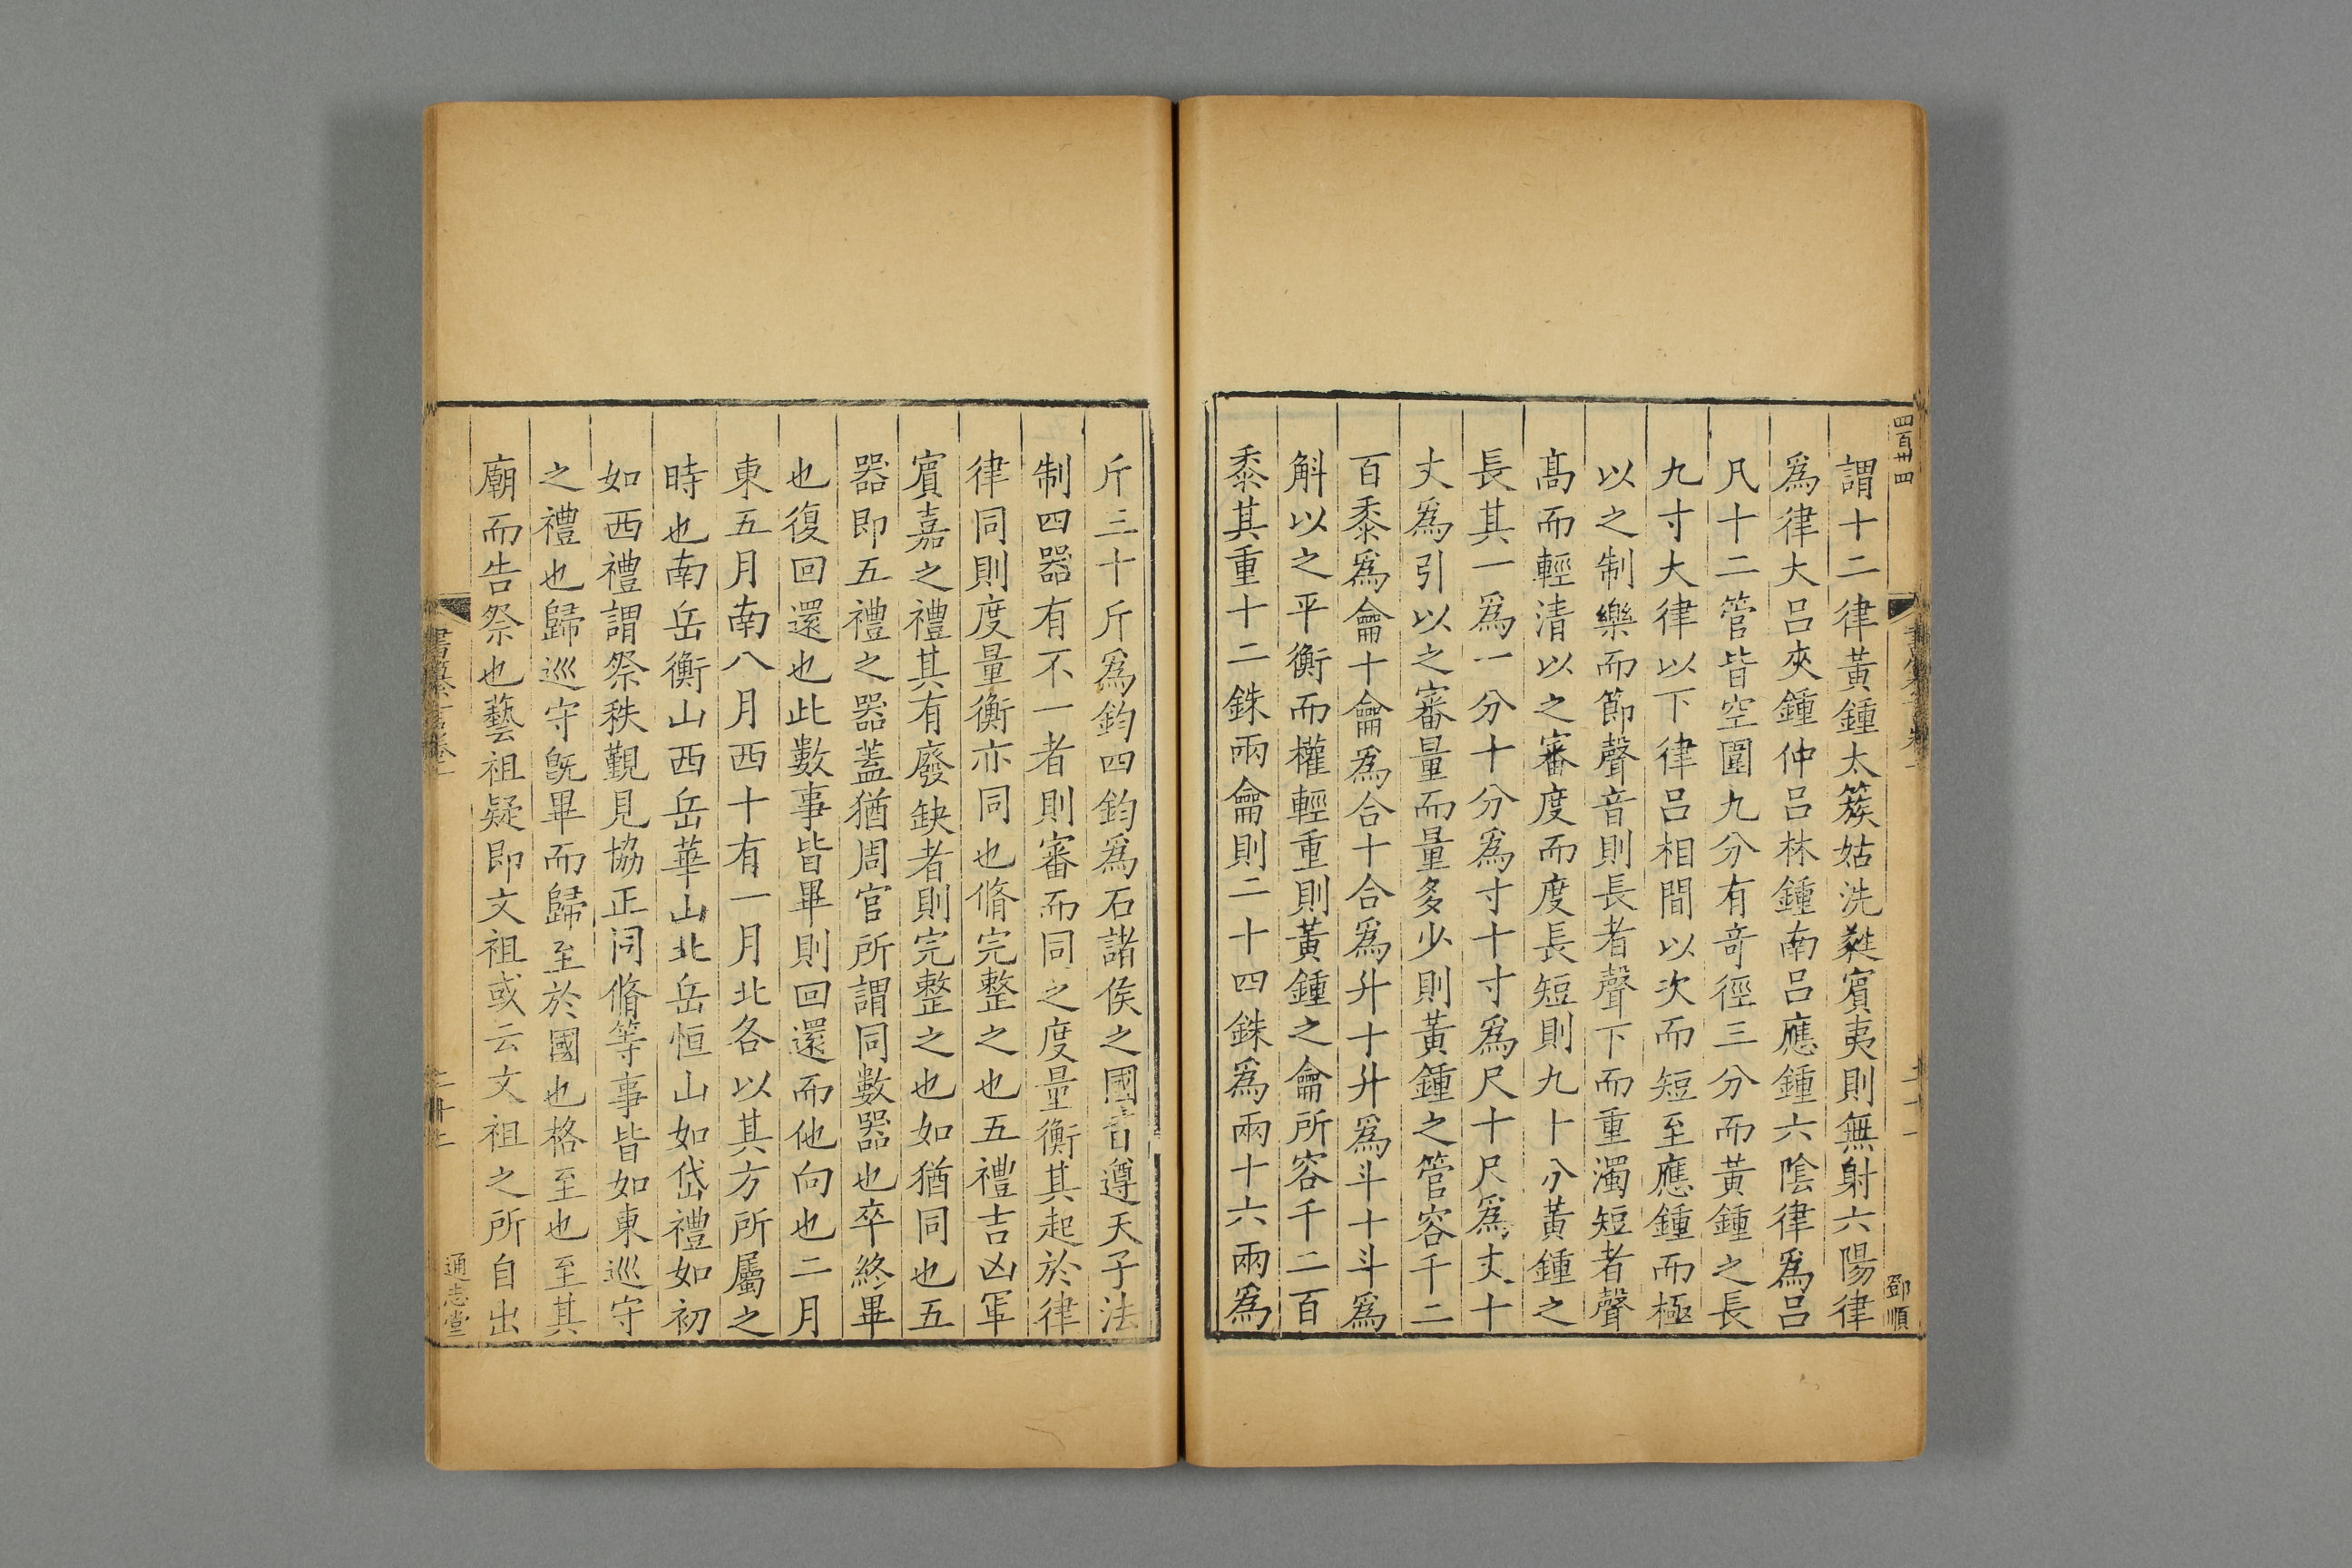 四百卌四
謂十二律黃鍾太簇姑洗蕤賓夷則無射六陽律
爲律大呂夾鍾仲呂林鍾南呂應鍾六隂律爲呂
凡十二管皆空圍九分有竒徑三分而黃鍾之長
九寸大律以下律呂相間以次而短至應鍾而極
以之制樂而節聲音則長者聲下而重濁短者聲
髙而輕清以之審度而度長短則九十分黃鍾之
長其一爲一分十分爲寸十寸爲尺十尺爲丈十
丈爲引以之審量而量多少則黃鍾之管容千二
百黍爲龠十龠爲合十合爲升十升爲斗十斗爲
斛以之平衡而權輕重則黃鍾之龠所容千二百
黍其重十二銖兩龠則二十四銖爲兩十六兩爲
鄧順
斤三十斤爲鈞四鈞爲石諸侯之國皆遵天子法
制四器有不一者則審而同之度量衡其起於律
律同則度量衡亦同也脩完整之也五禮吉凶軍
賓嘉之禮其有廢缺者則完整之也如猶同也五
器即五禮之器蓋猶周官所謂同數器也卒終畢
也復回還也此數事皆畢則回還而他向也二月
東五月南八月西十有一月北各以其方所屬之
時也南岳衡山西岳華山北岳恒山如岱禮如初
如西禮謂祭秩覲見協正同脩等事皆如東巡守
之禮也歸巡守旣畢而歸至於國也格至也至其
廟而告祭也藝祖疑即文祖或云文祖之所自出
書纂言卷一
通志堂